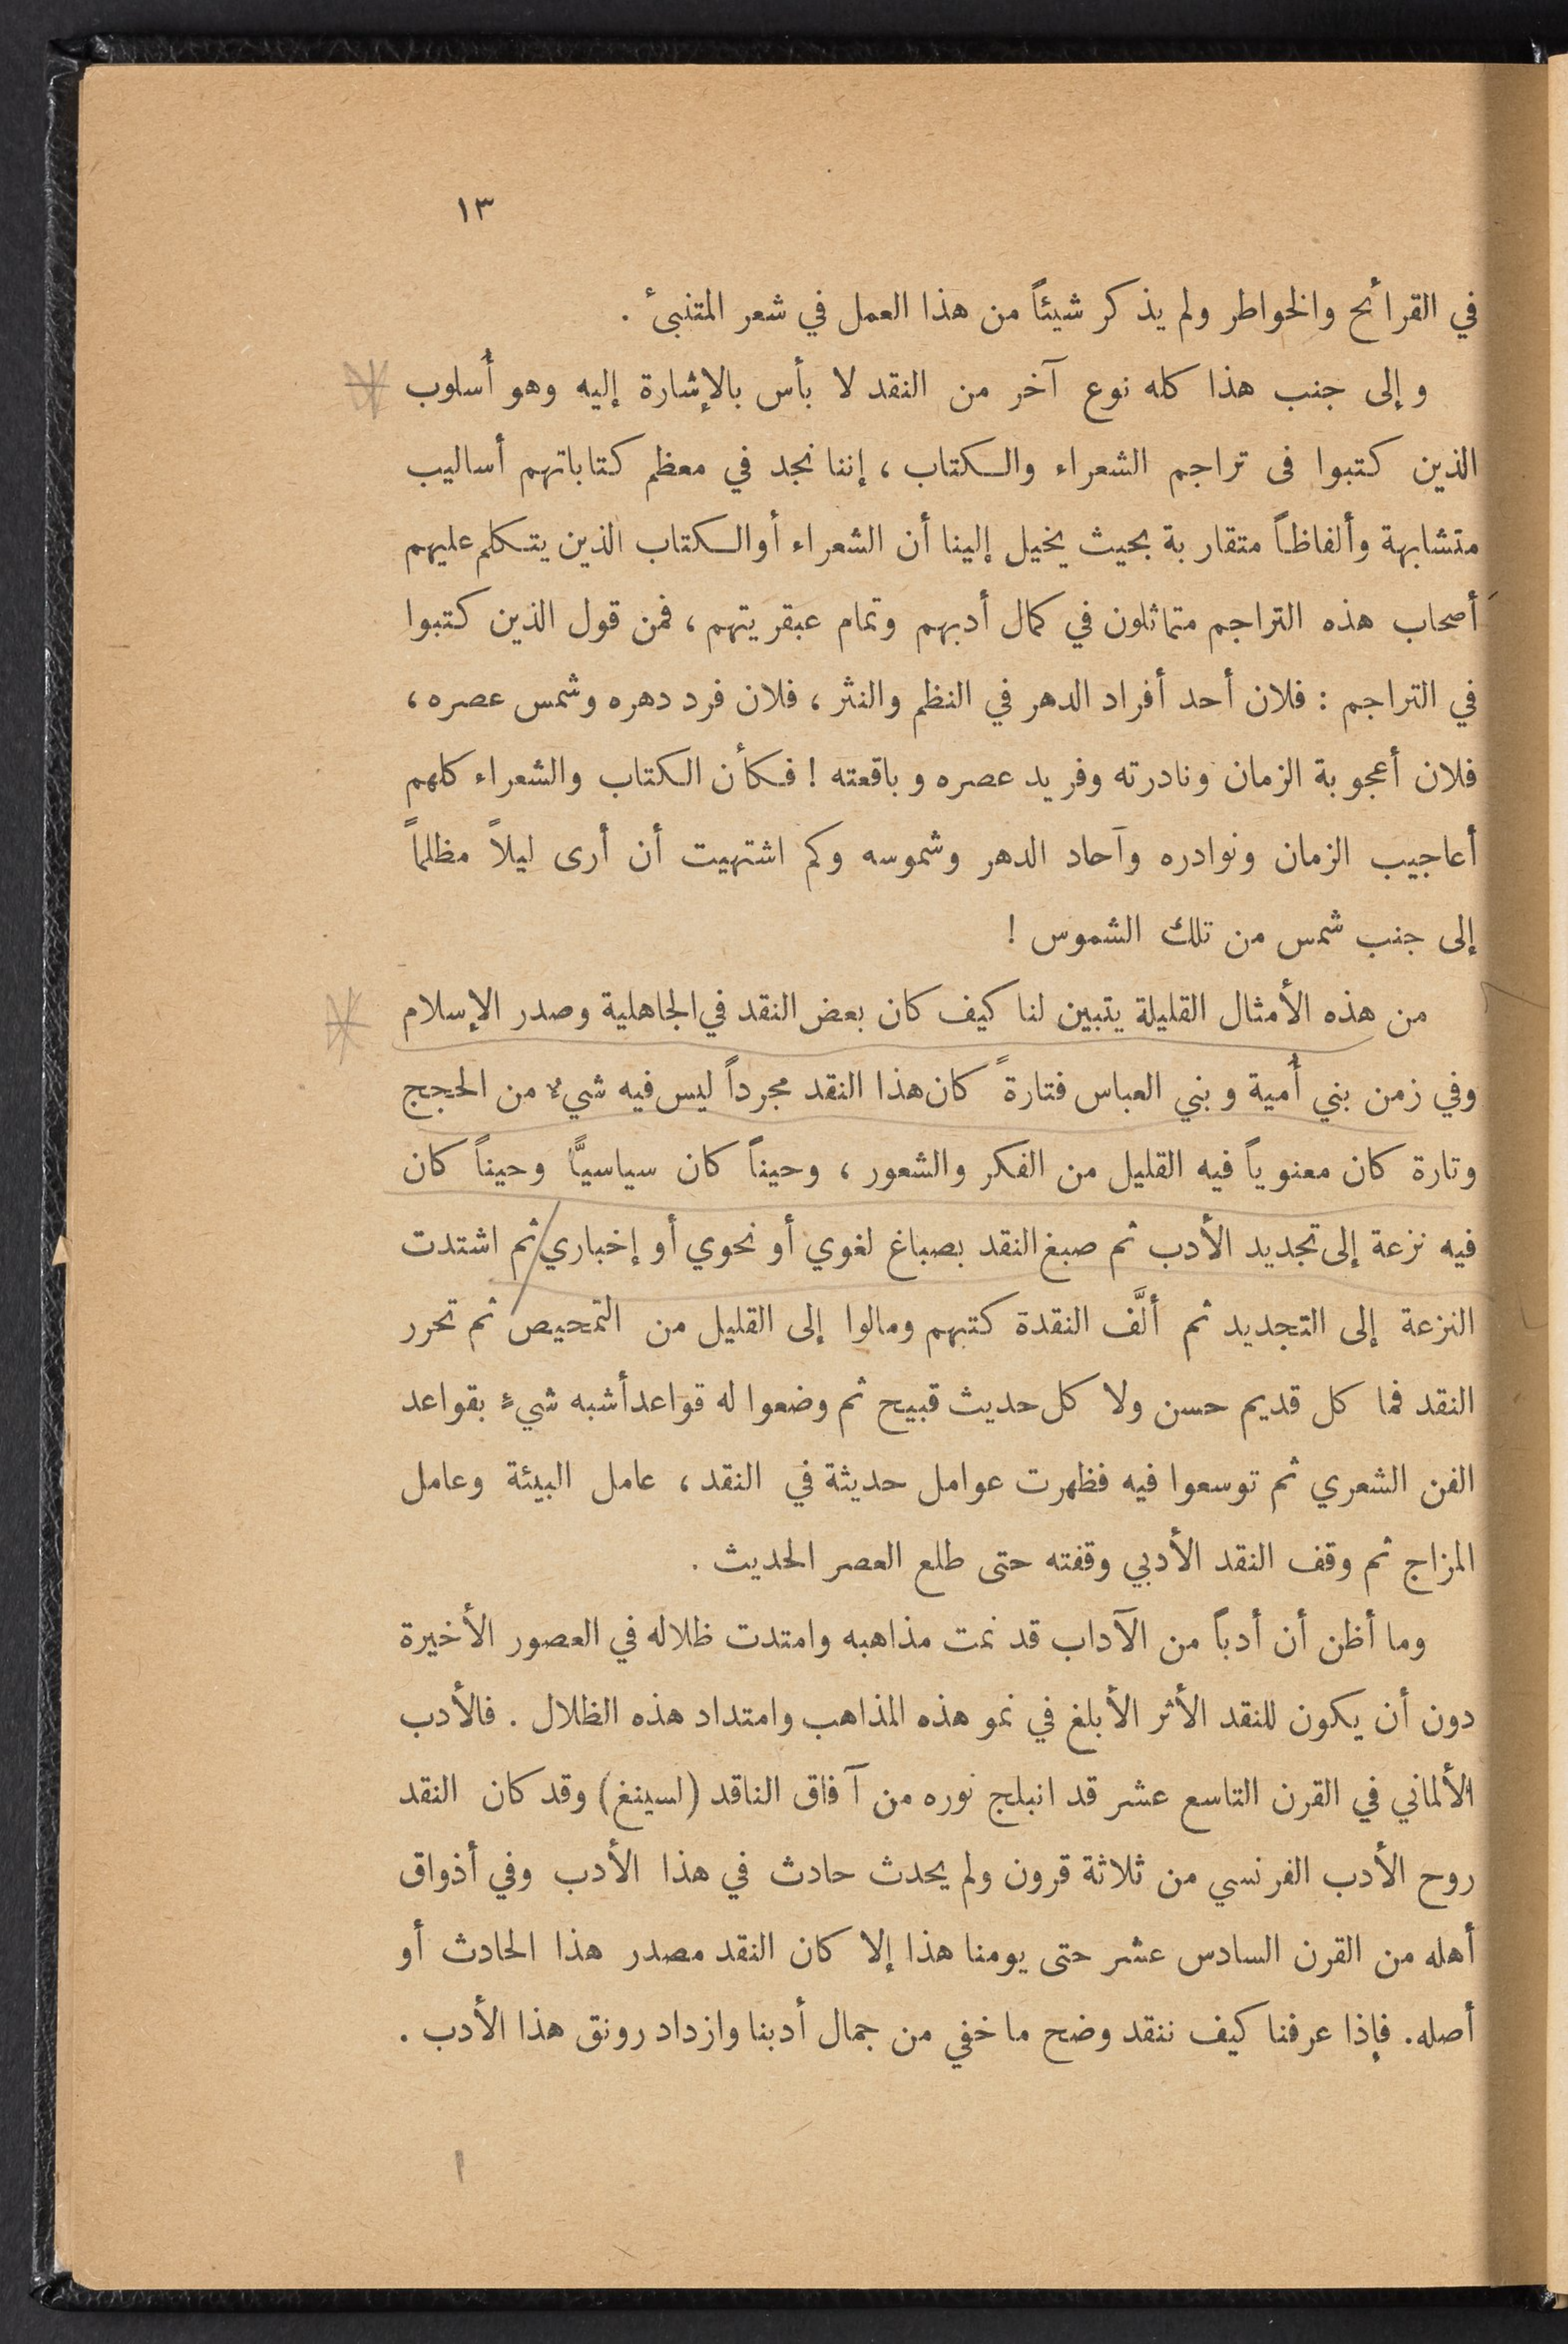 ١٣
في القرائح والخواطر ولم يذكر شيئاً من هذا العمل في شعر المتنبئ .
وإلى جنب هذا كله نوع آخر من النقد لا بأس بالإشارة إليه وهو أُسلوب
الذين كتبوا فى تراجم الشعراء والكتاب ، إننا نجد في معظم كتاباتهم أساليب
متشابهة وألفاظاً متقاربة بحيث يخيل إلينا أن الشعراء أو الكتاب الذين يتكلم عليهم
أصحاب هذه التراجم متماثلون في كمال أدبهم وتمام عبقريتهم ، فمن قول الذين كتبوا
في التراجم : فلان أحد أفراد الدهر في النظم والنثر ، فلان فرد دهره وشمس عصره ،
فلان أعجوبة الزمان ونادرته وفريد عصره وباقعته ! فكأن الكتاب والشعراء كلهم
أعاجيب الزمان ونوادره وآحاد الدهر وشموسه وكم اشتهيت أن أرى ليلاً مظلماً
إلى جنب شمس من تلك الشموس !
من هذه الأمثال القليلة يتبين لنا كيف كان بعض النقد في الجاهلية وصدر الإسلام
وفي زمن بني أُمية وبني العباس فتارةً كان هذا النقد مجرداً ليس فيه شيءٌ من الحجج
وتارة كان معنوياً فيه القليل من الفكر والشعور ، وحيناً كان سياسيًّا وحيناً كان
فيه نزعة إلى تجديد الأدب ثم صبغ النقد بصباغ لغوي أو نحوي أو إخباري ثم اشتدت
النزعة إلى التجديد ثم ألَّف النقدة كتبهم ومالوا إلى القليل من التمحيص ثم تحرر
النقد فما كل قديم حسن ولا كل حديث قبيح ثم وضعوا له قواعد أشبه شيءٍ بقواعد
الفن الشعري ثم توسعوا فيه فظهرت عوامل حديثة في النقد ، عامل البيئة وعامل
المزاج ثم وقف النقد الأدبي وقفته حتى طلع العصر الحديث .
وما أظن أن أدباً من الآداب قد نمت مذاهبه وامتدت ظلاله في العصور الأخيرة
دون أن يكون للنقد الأثر الأبلغ في نمو هذه المذاهب وامتداد هذه الظلال . فالأدب
الألماني في القرن التاسع عشر قد انبلج نوره من آفاق الناقد (لسينغ) وقد كان النقد
روح الأدب الفرنسي من ثلاثة قرون ولم يحدث حادث في هذا الأدب وفي أذواق
أهله من القرن السادس عشر حتى يومنا هذا إلا كان النقد مصدر هذا الحادث أو
أصله. فإذا عرفنا كيف ننقد وضح ما خفي من جمال أدبنا وازداد رونق هذا الأدب .